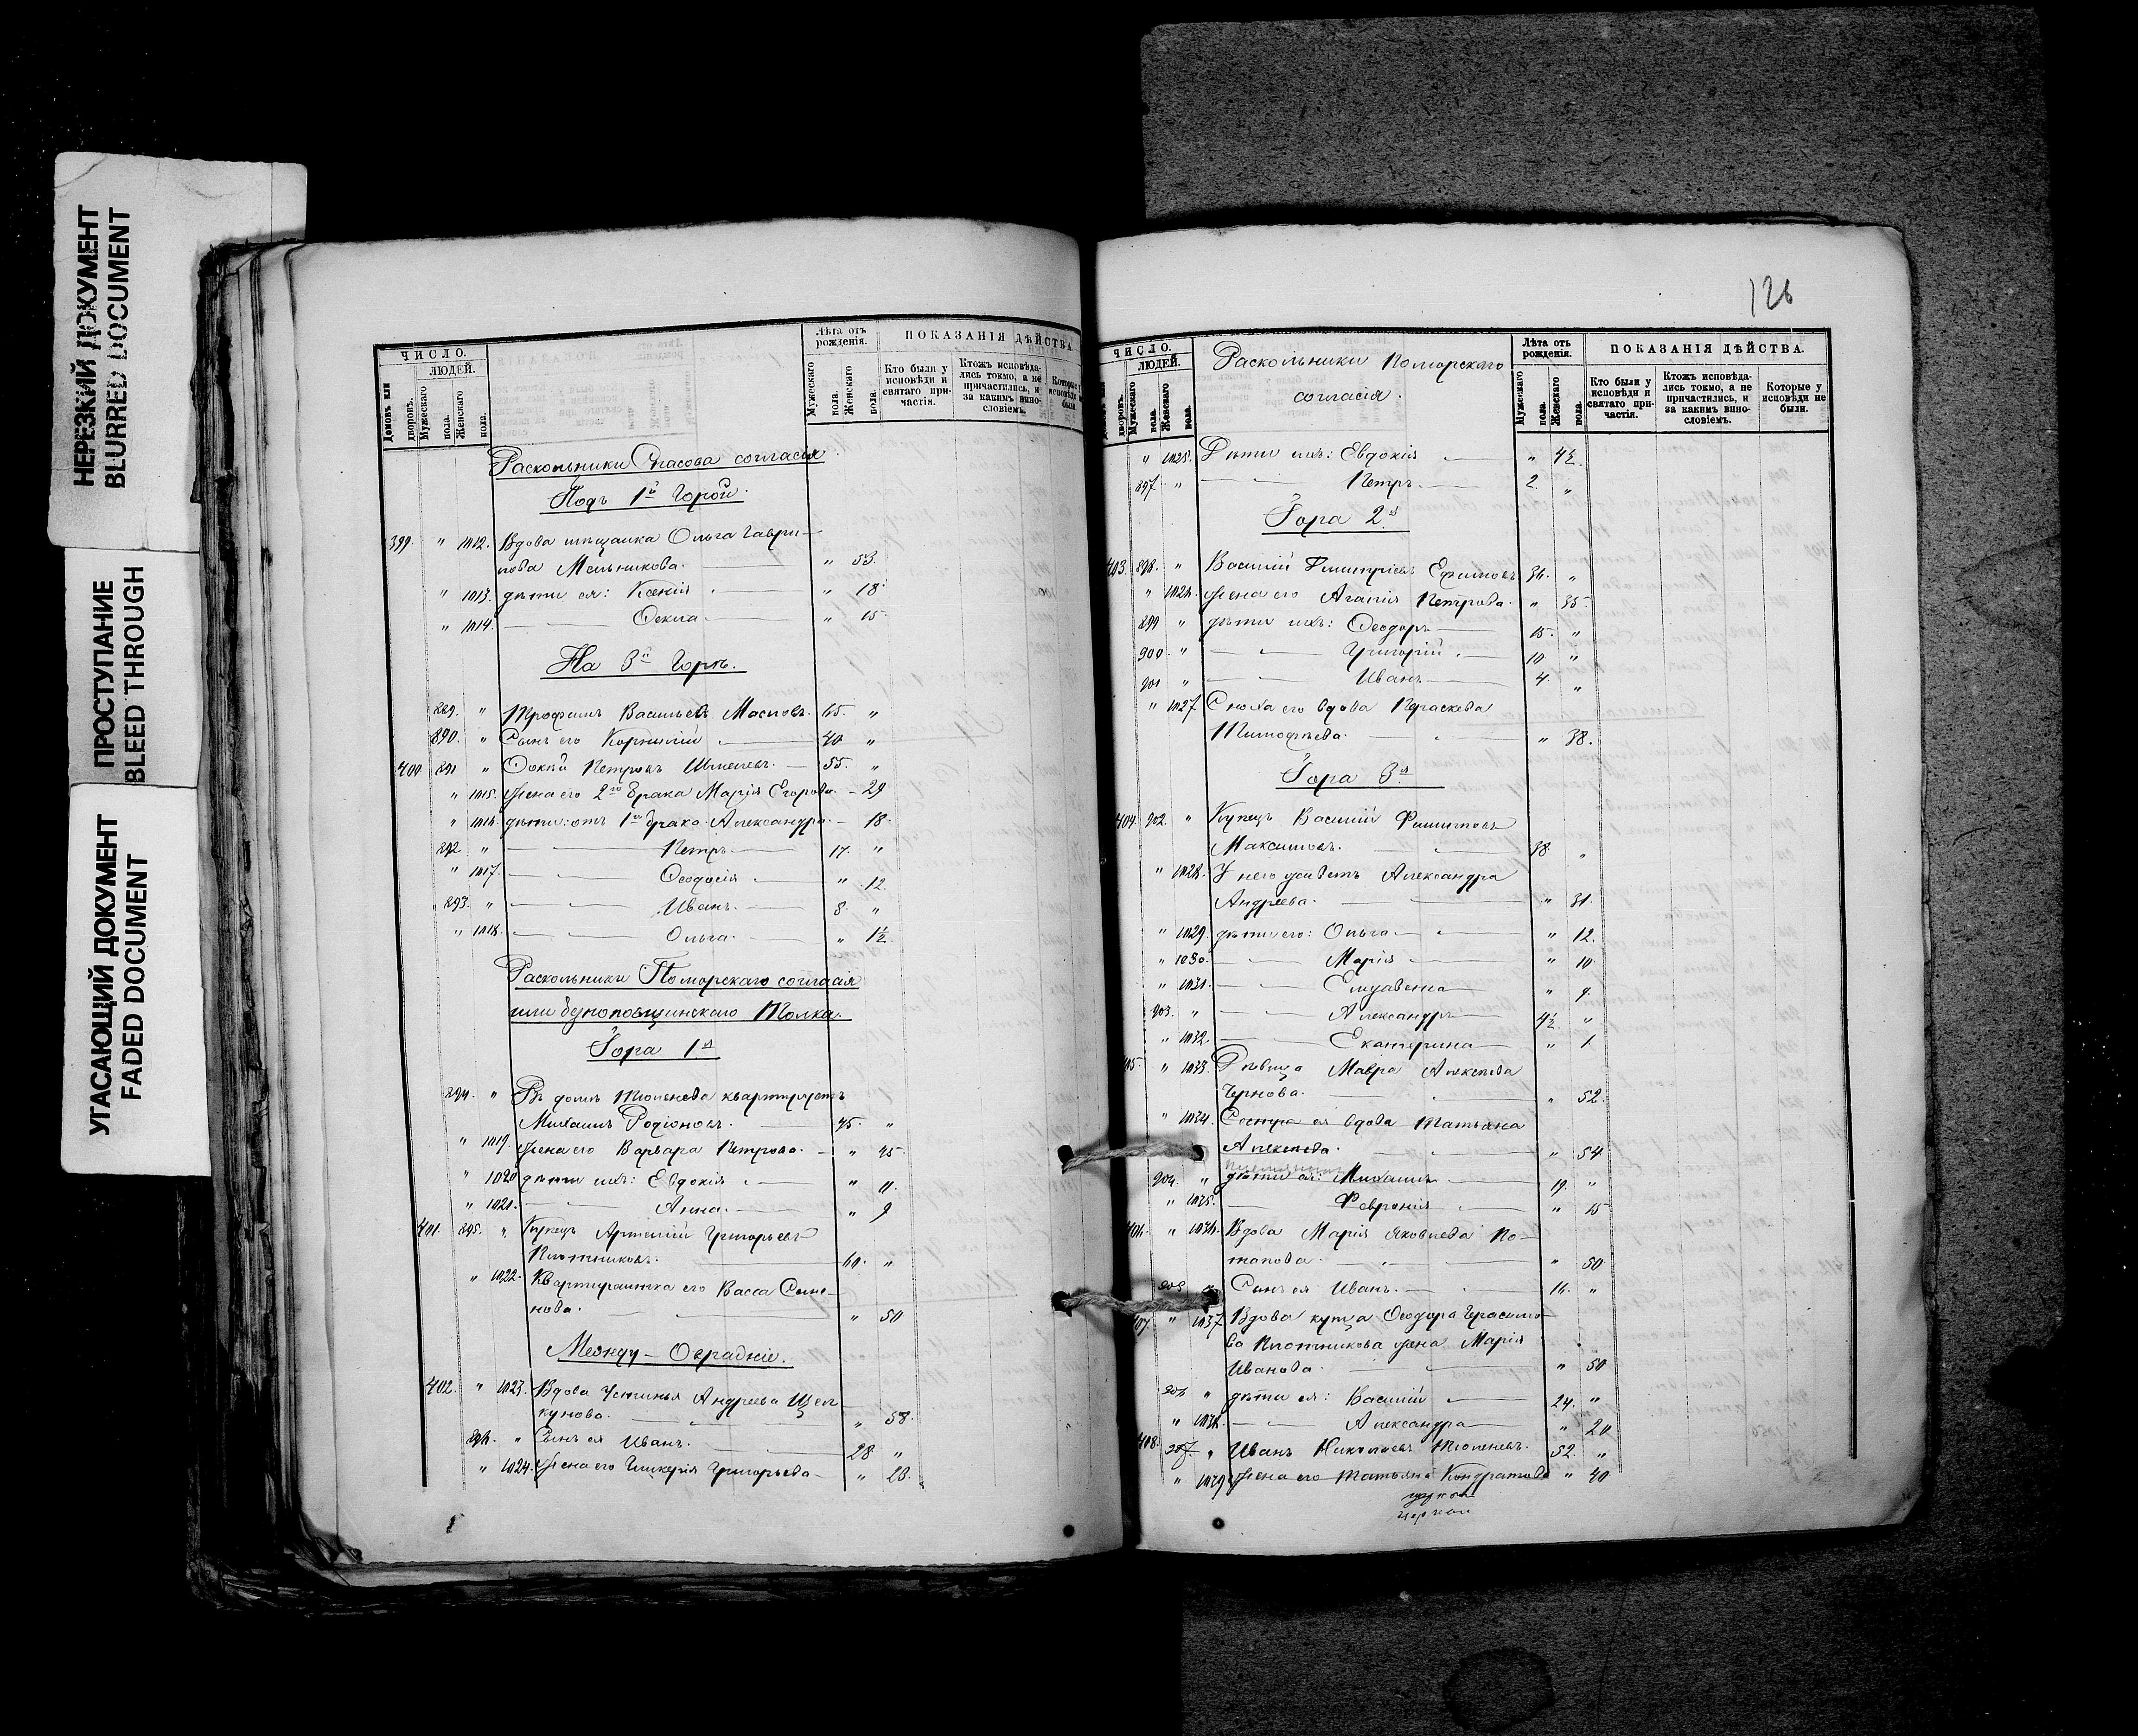 НЕРЕЗКИЙ ДОКУМЕНТ
BLURRED DOCUMENT
ПРОСТУПАНИЕ
BLEED THROUGH
УГАСАЮЩИЙ ДОКУМЕНТ
FADED DOCUMENT
ЧИСЛО.
Домовъ или дворовъ.
ЛЮДЕЙ.
Мужескаго пола.
Женскаго пола.
Лѣта отъ рожденія.
Мужескаго пола.
Женскаго пола.
ПОКАЗАНІЯ ДѢЙСТВА
Кто были у исповѣди и святаго причастія.
Ктожъ исповѣдались токмо, а не причастились, и за какимъ винословіемъ.
Которые у исповѣди не были.
Раскольники Спасова согласія
Подъ 1й Горой.
399. " 1012. Вдова мѣщанка Ольга Гаври-
лова Мельникова. " 53.
" 1013. дѣти ея: Ксенія " 18.
" 1014. Фекла " 15.
На 3й Горѣ.
889. " Трофимъ Васильевъ Масловъ. 65. "
890. " Сынъ его Корнилій 40 "
400 891 " Фокій Петровъ 55. "
" 1015. Жена его 2го брака Марія Егорова. - 29
" 1016. дѣти: отъ 1го брака: Александра. - 18.
892 " Петръ 17. "
" 1017. Феодосія " 12.
893. " Иванъ. 8. "
" 1018. Ольга. " 1½
Раскольники Поморскаго согласія
или безпоповщинскаго Толка.
Гора 1я
894. " Въ домѣ Тюленева квартируетъ
Михаилъ Родіоновъ. 45. "
" 1019. Жена его Варвара Петрова. - " 45
" 1020 дѣти ихъ: Евдокія " 11.
" 1021. Анна. " 9
401. 895. " Купецъ Артемій Григорьевъ
Плотниковъ. 60. "
" 1022. Квартирантка его Васса Семе-
нова. " 50
Между-Овражіе.
402. " 1023. Вдова Устинья Андреева Щел
кунова. " 58.
896. " Сынъ ея Иванъ. 28 "
" 1024. Жена его Гликерія Григорьева " 23.
126
ЧИСЛО.
Домовъ или дворовъ.
ЛЮДЕЙ.
Мужескаго пола.
Женскаго пола.
Раскольники Поморскаго
согласія.
Лѣта отъ рожденія.
Мужескаго пола.
Женскаго пола.
ПОКАЗАНІЯ ДѢЙСТВА.
Кто были у исповѣди и святаго причастія.
Ктожъ исповѣдались токмо, а не причастились, и за какимъ винословіемъ.
Которые у исповѣди не были.
" 1025. Дѣти ихъ: Евдокія " 4½
897. " Петръ. 2. "
Гора 2я
403. 898. " Василій Дмитріевъ Ефимовъ 36. "
" 1026. Жена его Агапія Петрова. " 35.
899 " дѣти ихъ: Феодоръ 15. "
900. " Григорій 10 "
901 " Иванъ 4. "
" 1027 Сноха его вдова Параскева
Тимофѣева. " 38.
Гора 3я
404. 902. " Купецъ Василій Филиповъ
Максимовъ. 38. "
" 1028. У него живетъ Александра
Андреева. " 31.
" 1029. дѣти его: Ольга " 12.
" 1030. Марія " 10
" 1031. Елизавета " 7.
903. " Александръ 4½ "
" 1032. Екатерина " 1
405. " 1033. Дѣвица Мавра Алексѣева
Чернова. " 52.
" 1034. Сестра ея вдова Татьяна
Алексѣева. " 54
904. " дѣти ея: Михаилъ 19. "
" 1035. Февронія " 15
406. " 1036. Вдова Марія Яковлева По-
тапова " 50
905 " Сынъ ея Иванъ. 16. "
407 " 1037 Вдова купца Феодора Герасимо-
ва Плотникова жена Марія
Иванова. " 50
906 " дѣти ея: Василій 24. "
" 1038. Александра " 20
408. 907 " Иванъ Николаевъ Тюленевъ. 52. "
" 1039 Жена его Татьяна Кондратова " 40